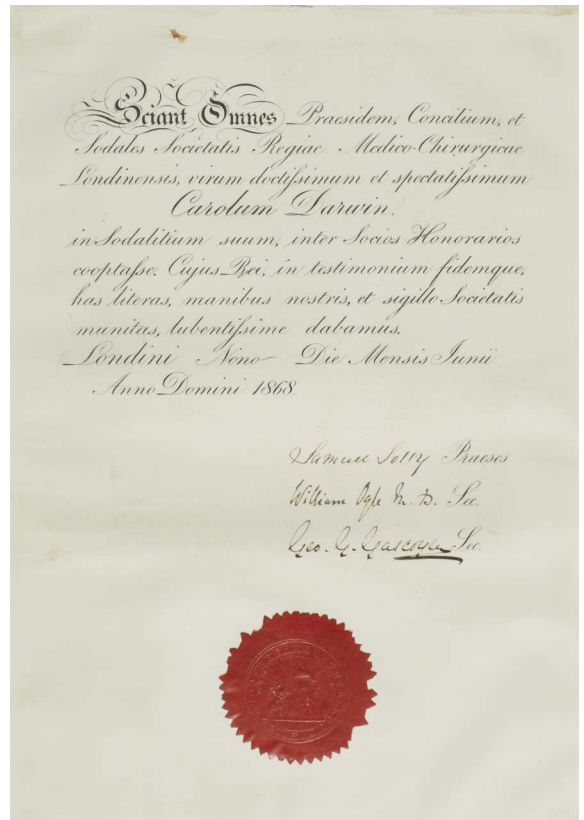 Sciant Omnes Praesidem, Concilium, et
Sodales Societatis Regiae Medico-Chirurgicae
Londinensis, virum doctissimum et spectatissimum
Carolum Darwin,
in Sodalitium suum, inter Socios Honorarios
cooptasse. Cujus Rei, in testimonium fidemque,
has literas, manibus nostris, et sigillo Societatis
munitas, lubentissime dabamus.
Londini Nono Die Mensis Junii
Anno Domini 1868.
Samuel Solly Praeses
William Ogle M. D. Sec.
Geo. G. Gascoyen Sec.